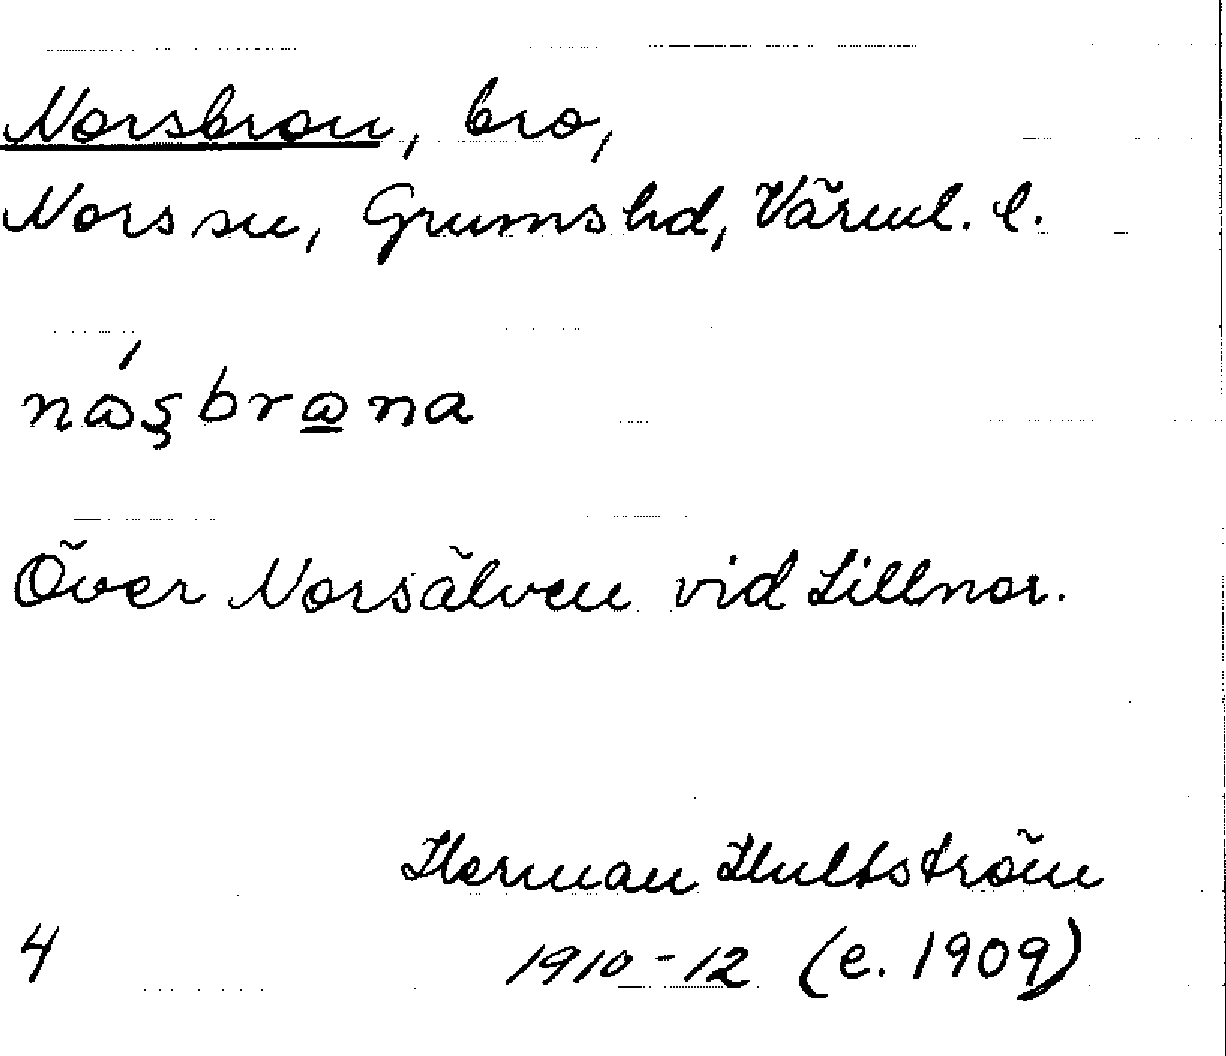 Norsbron, bro,
Nors sn, Grums hd, Värml. l.
nꞷ́şbrꞷ̲na
Över Norsälven vid Lillnor.
Herman Hultström
4 1910-12 (e. 1909)